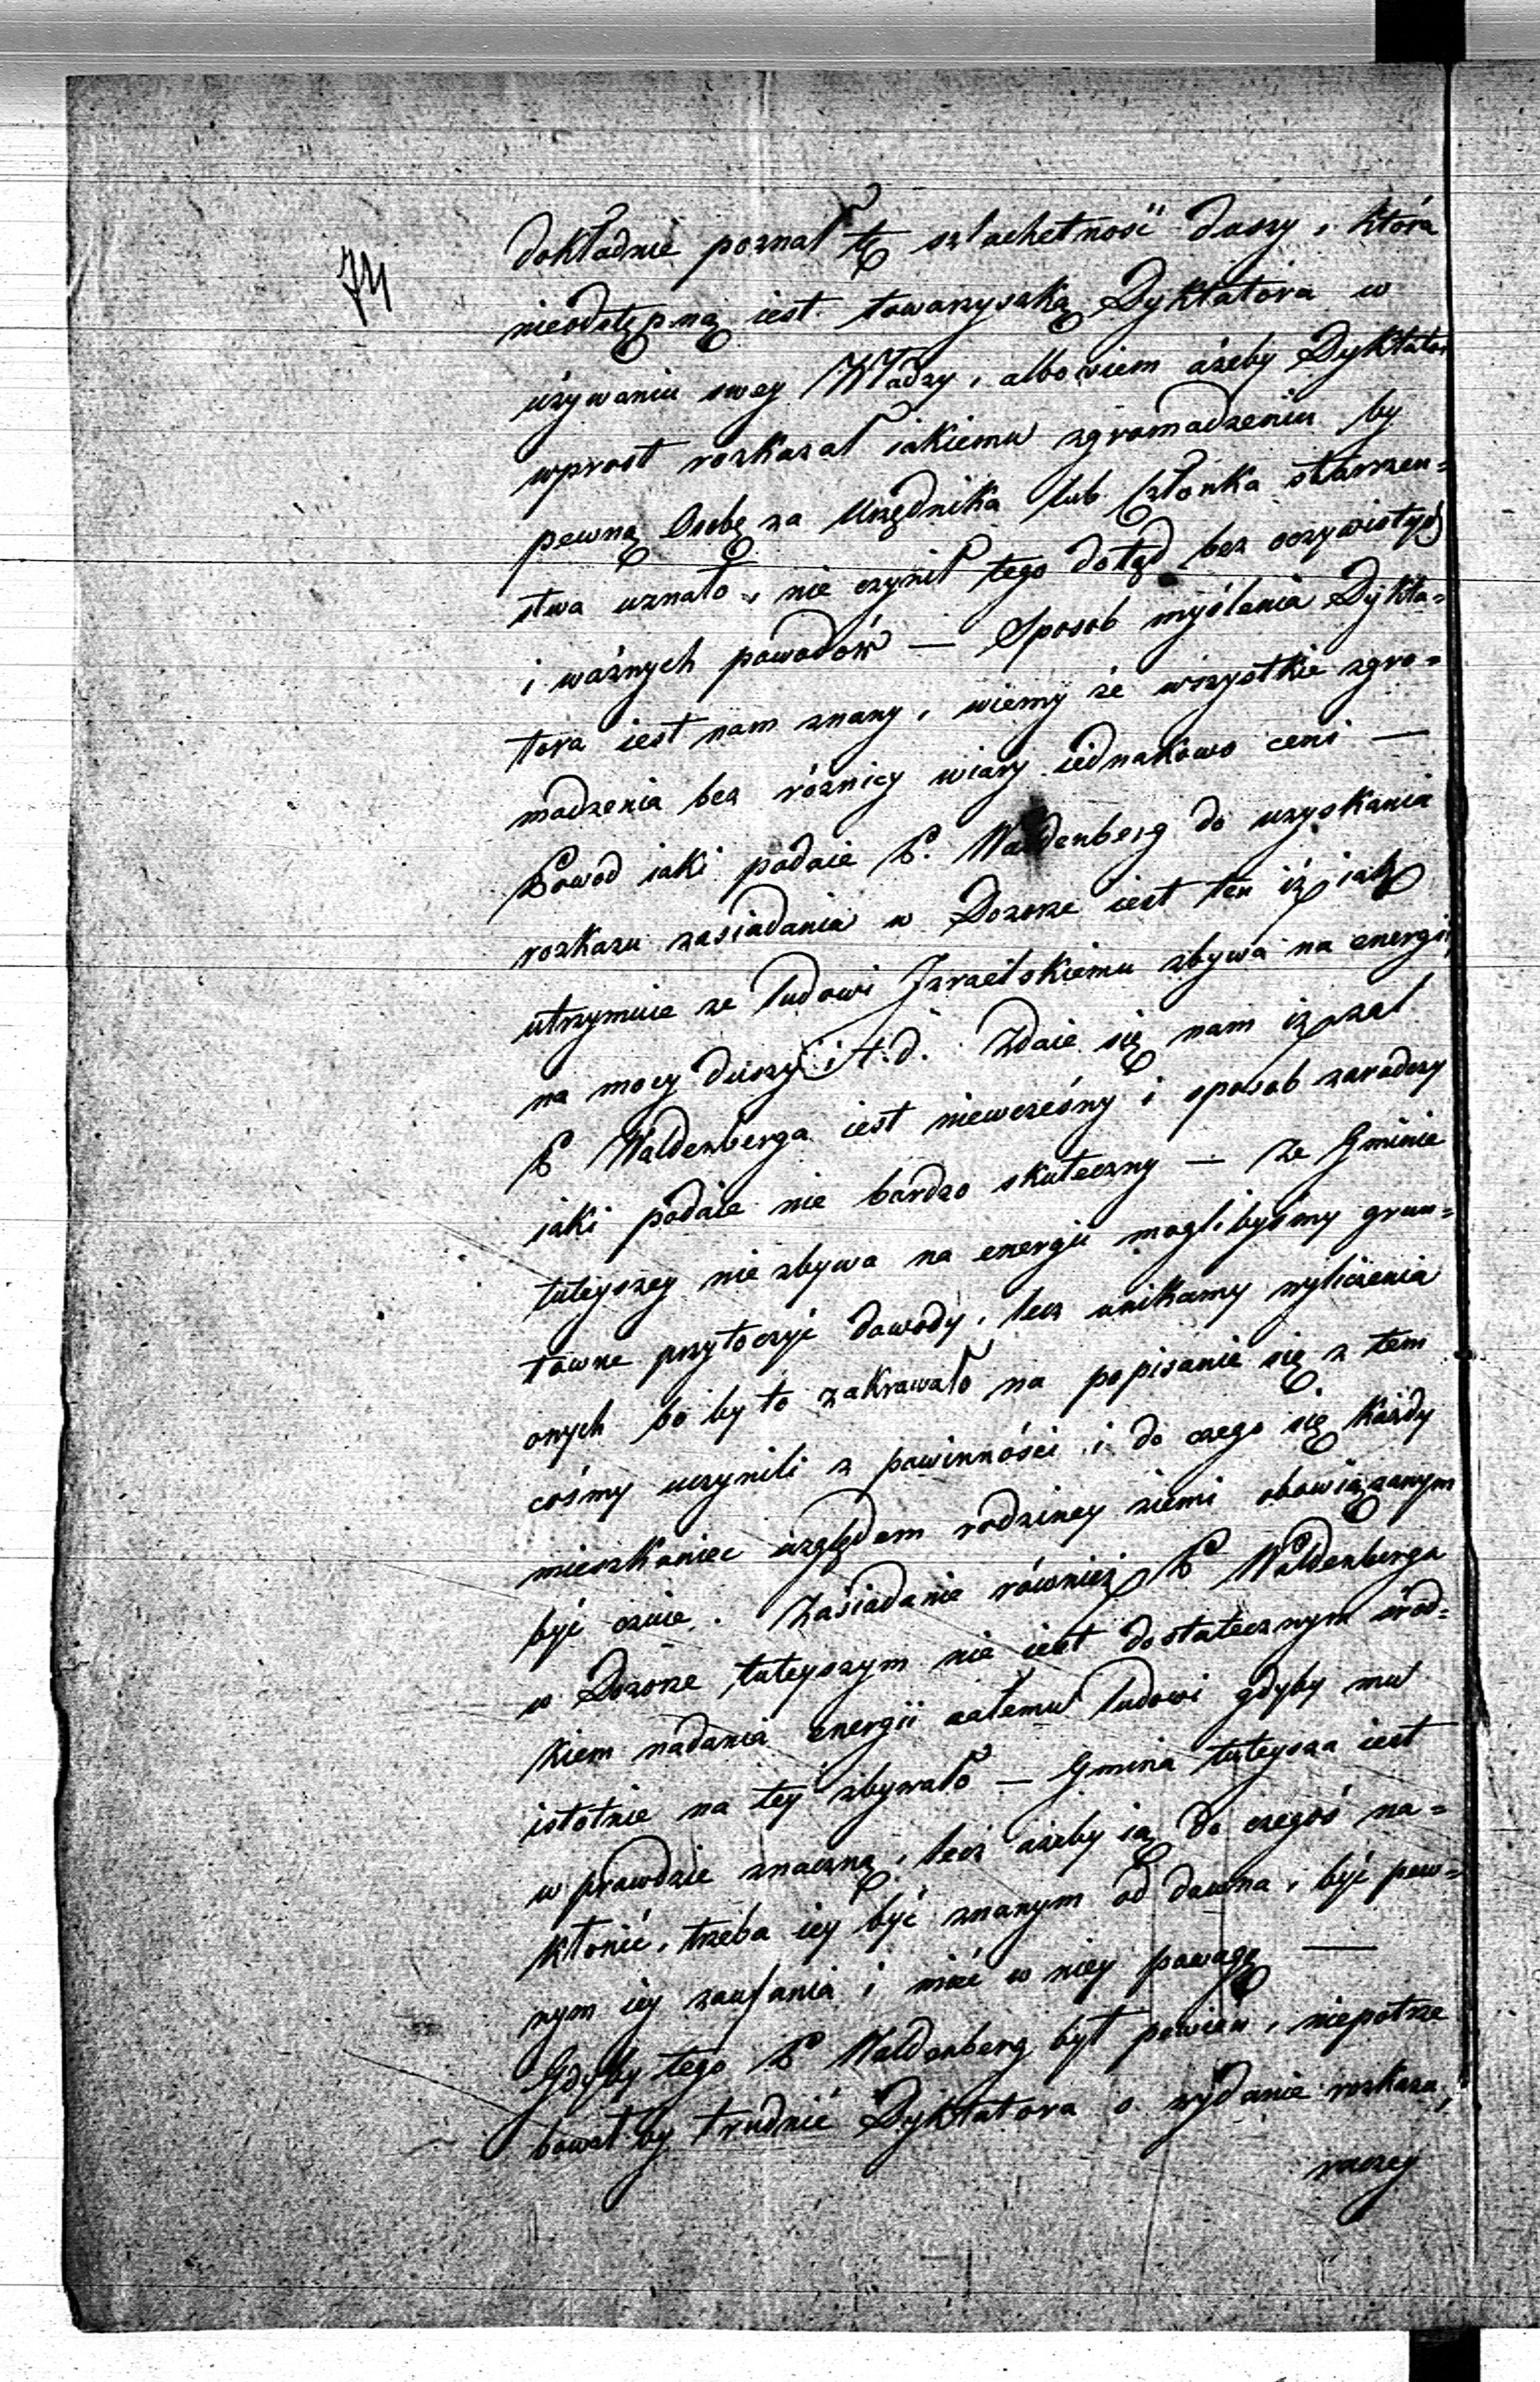 74
dokładnie poznał tę szlachetność duszy, która
nieodstępną iest towarzyszką Dyktatora w
używaniu swey Władzy, albowiem ażeby Dyktator
wprost rozkazał iakiemu zgromadzeniu by
pewną Osobę za Urzędnika lub Członka starszeń=
stwa uznało, nie czynił tego dotąd bez oczywistych
i ważnych powodów — Sposób myślenia Dykta=
tora iest nam znany, wiemy że wszystkie zgro=
madzenia bez różnicy wiary iednakowo ceni —
Powod iaki podaie P. Waldenberg do uzyskania
rozkazu zasiadania w Dozorze iest ten iż iak
utrzymuie ze ludowi Izraelskiemu zbywa na energii,
na mocy duszy i t.d. Zdaie się nam iż żal
P Waldenberga iest niewcześny i sposob zaradczy
iaki podaie nie bardzo skuteczny — Ze Gminie
tuteyszey nie zbywa na energii moglibyśmy grun=
towne przytoczyć dowody, lecz unikamy wyliczenia
onych bo by to zakrawało na popisanie się z tem
cośmy uczynili z powinności i do czego się każdy
mieszkaniec względem rodziney ziemi obowiązanym
być czuie. Zasiadanie również P Waldenberga
w Dozorze tuteyszym nie iest dostatecznym środ=
kiem nadania energii całemu ludowi gdyby mu
istotnie na tey zbywało — Gmina tuteysza iest
w prawdzie znaczną, lecz ażeby ią do czegoś na=
kłonić, trzeba iey być znanym od dawna, być pew=
nym iey zaufania i mieć w niey powagę —
Gdyby tego P Waldenberg był pewien, niepotrze
bował by trudnić Dyktatora o wydanie rozkazu,
raczey